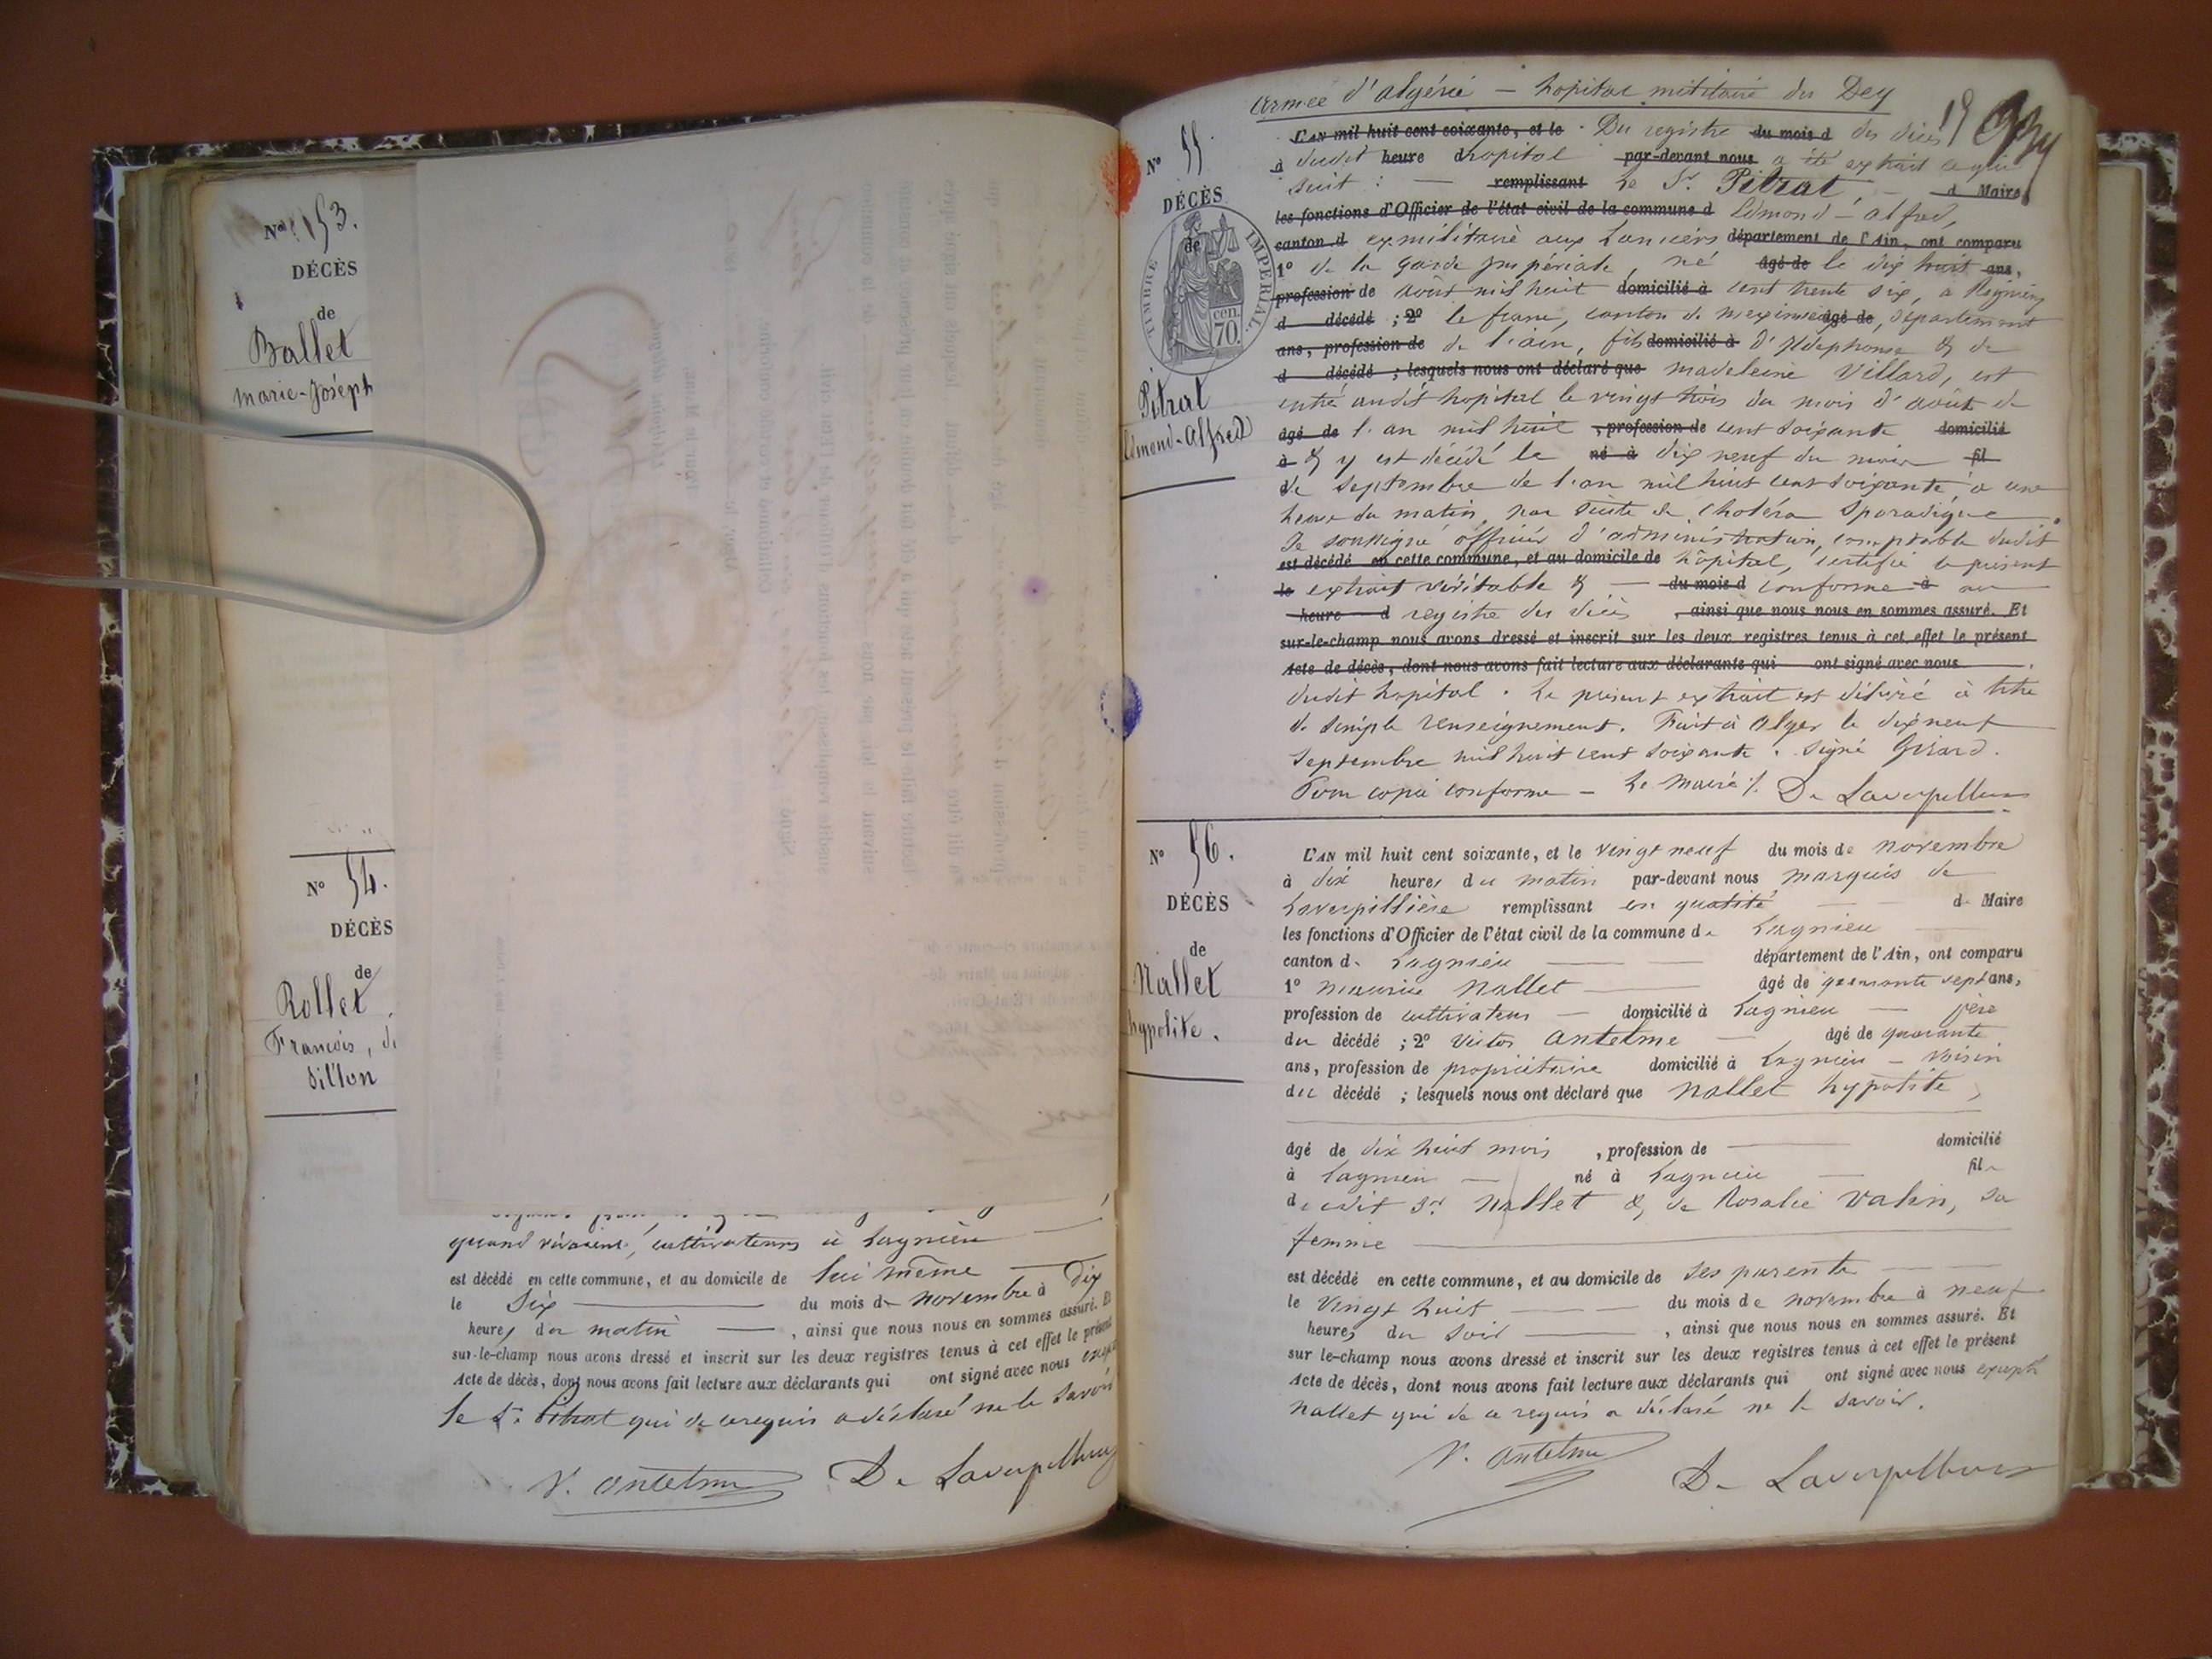 N° 53.
DÉCÈS
de
Ballet
marie-Joseph
N° 54.
DÉCÈS
de
Rollet
François, d
Sillon
quand vivaient, cultivateurs à Lagnieu
est décédé en cette commune, et au domicile de lui même
le Six du mois de novembre à Dix
heures du matin , ainsi que nous nous en sommes assuré. Et
sur-le-champ nous avons dressé et inscrit sur les deux registres tenus à cet effet le présent
Acte de décès, dont nous avons fait lecture aux déclarants qui ont signé avec nous
le Sr. Pitrat qui de ce requis a déclaré ne le savoir
V. Antelme De Laverpilliere
Armée d'algérie – hopital militaire du Dey
N° 55
DÉCÈS
de
TIMBRE IMPERIAL
70 cen.
Pitrat
Edmond-Alfred
L'AN mil huit cent soixante, et le Du registre du mois d des décès
à dudit heure d hopital par-devant nous a été extrait ce qui
suit : remplissant le Sr. Pitrat d Maire
les fonctions d'Officier de l'état civil de la commune d Edmond-alfred,
canton d ex militaire aux Lanciers département de l'Ain, ont comparu
1° de la garde impériale, né âgé de le dix huit ans,
profession de août mil huit domicilié à cent trente six, à
d décédé ; 2° le franc, canton de meximieux âgé de , département
ans, profession de de l'ain, fils domicilié à d'Ildephonse & de
d décédé ; lesquels nous ont déclaré que madeleine Villard, est
entré audit hopital le vingt trois du mois d'aout de
âgé de l'an mil huit , profession de cent soixante domicilié
à & y est décédé le né à dix neuf du mois fil
de septembre de l'an mil huit cent soixante, à une
heure du matin, par suite de choléra sporadique.
Je soussigné officier d'administration, comptable dudit
est décédé en cette commune, et au domicile de hôpital, certifie le présent
le extrait véritable & du mois d conforme à au
heure d registre des décès , ainsi que nous nous en sommes assuré. Et
sur-le-champ nous avons dressé et inscrit sur les deux registres tenus à cet effet le présent
Acte de décès, dont nous avons fait lecture aux déclarants qui ont signé avec nous
dudit hopital. Le présent extrait est délivré à titre
de simple renseignement. Fait à Alger le dix neuf
septembre mil huit cent soixante. signé Girard.
Pour copie conforme – Le Maire De Laverpilliere
N° 56.
DÉCÈS
de
Nallet
hypolite.
L'AN mil huit cent soixante, et le vingt neuf du mois de novembre
à dix heures du matin par-devant nous marquis de
Laverpillière remplissant en qualité de Maire
les fonctions d'Officier de l'état civil de la commune de Lagnieu
canton de Lagnieu département de l'Ain, ont comparu
1° maurice Nallet âgé de quarante sept ans,
profession de cultivateur domicilié à Lagnieu père
du décédé ; 2° Victor Antelme âgé de quarante
ans, profession de propriétaire domicilié à Lagnieu – voisin
du décédé ; lesquels nous ont déclaré que Nallet hypolite,
âgé de dix huit mois , profession de domicilié
à Lagnieu né à Lagnieu fils
dudit Sr. Nallet & de Rosalie Valin, sa
femme
est décédé en cette commune, et au domicile de ses parents
le vingt huit du mois de novembre à neuf
heures du soir , ainsi que nous nous en sommes assuré. Et
sur le-champ nous avons dressé et inscrit sur les deux registres tenus à cet effet le présent
Acte de décès, dont nous avons fait lecture aux déclarants qui ont signé avec nous excepté
Nallet qui de ce requis a déclaré ne le savoir.
V. Antelme De Laverpilliere